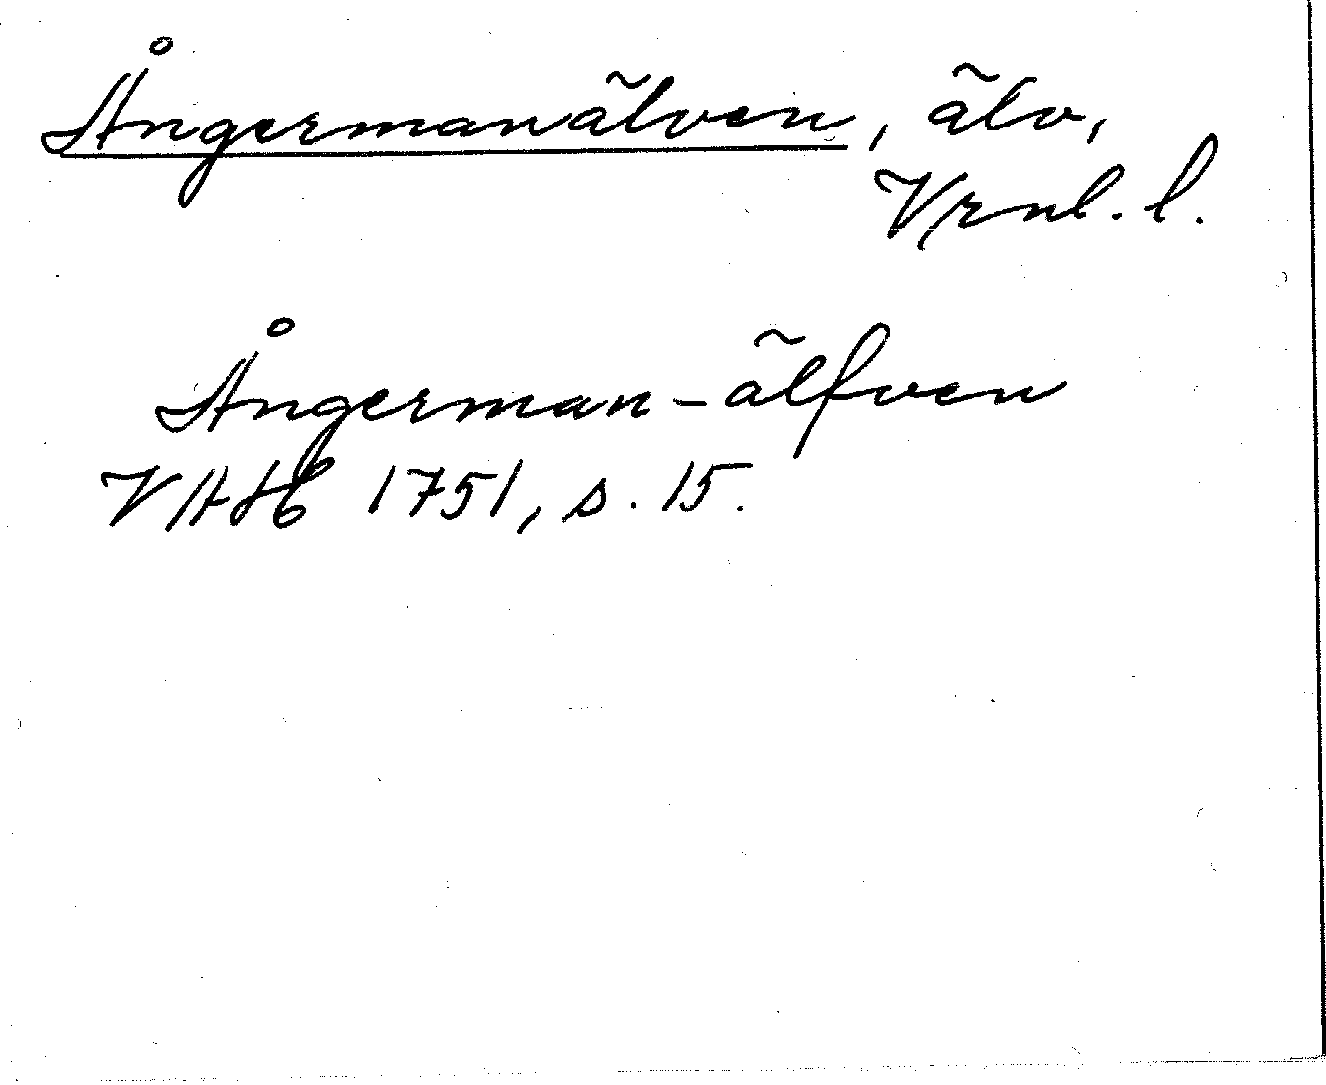 Ångermanälven, älv,
Vrnl. l.
Ångerman-älfven
VAH 1751, s. 15.